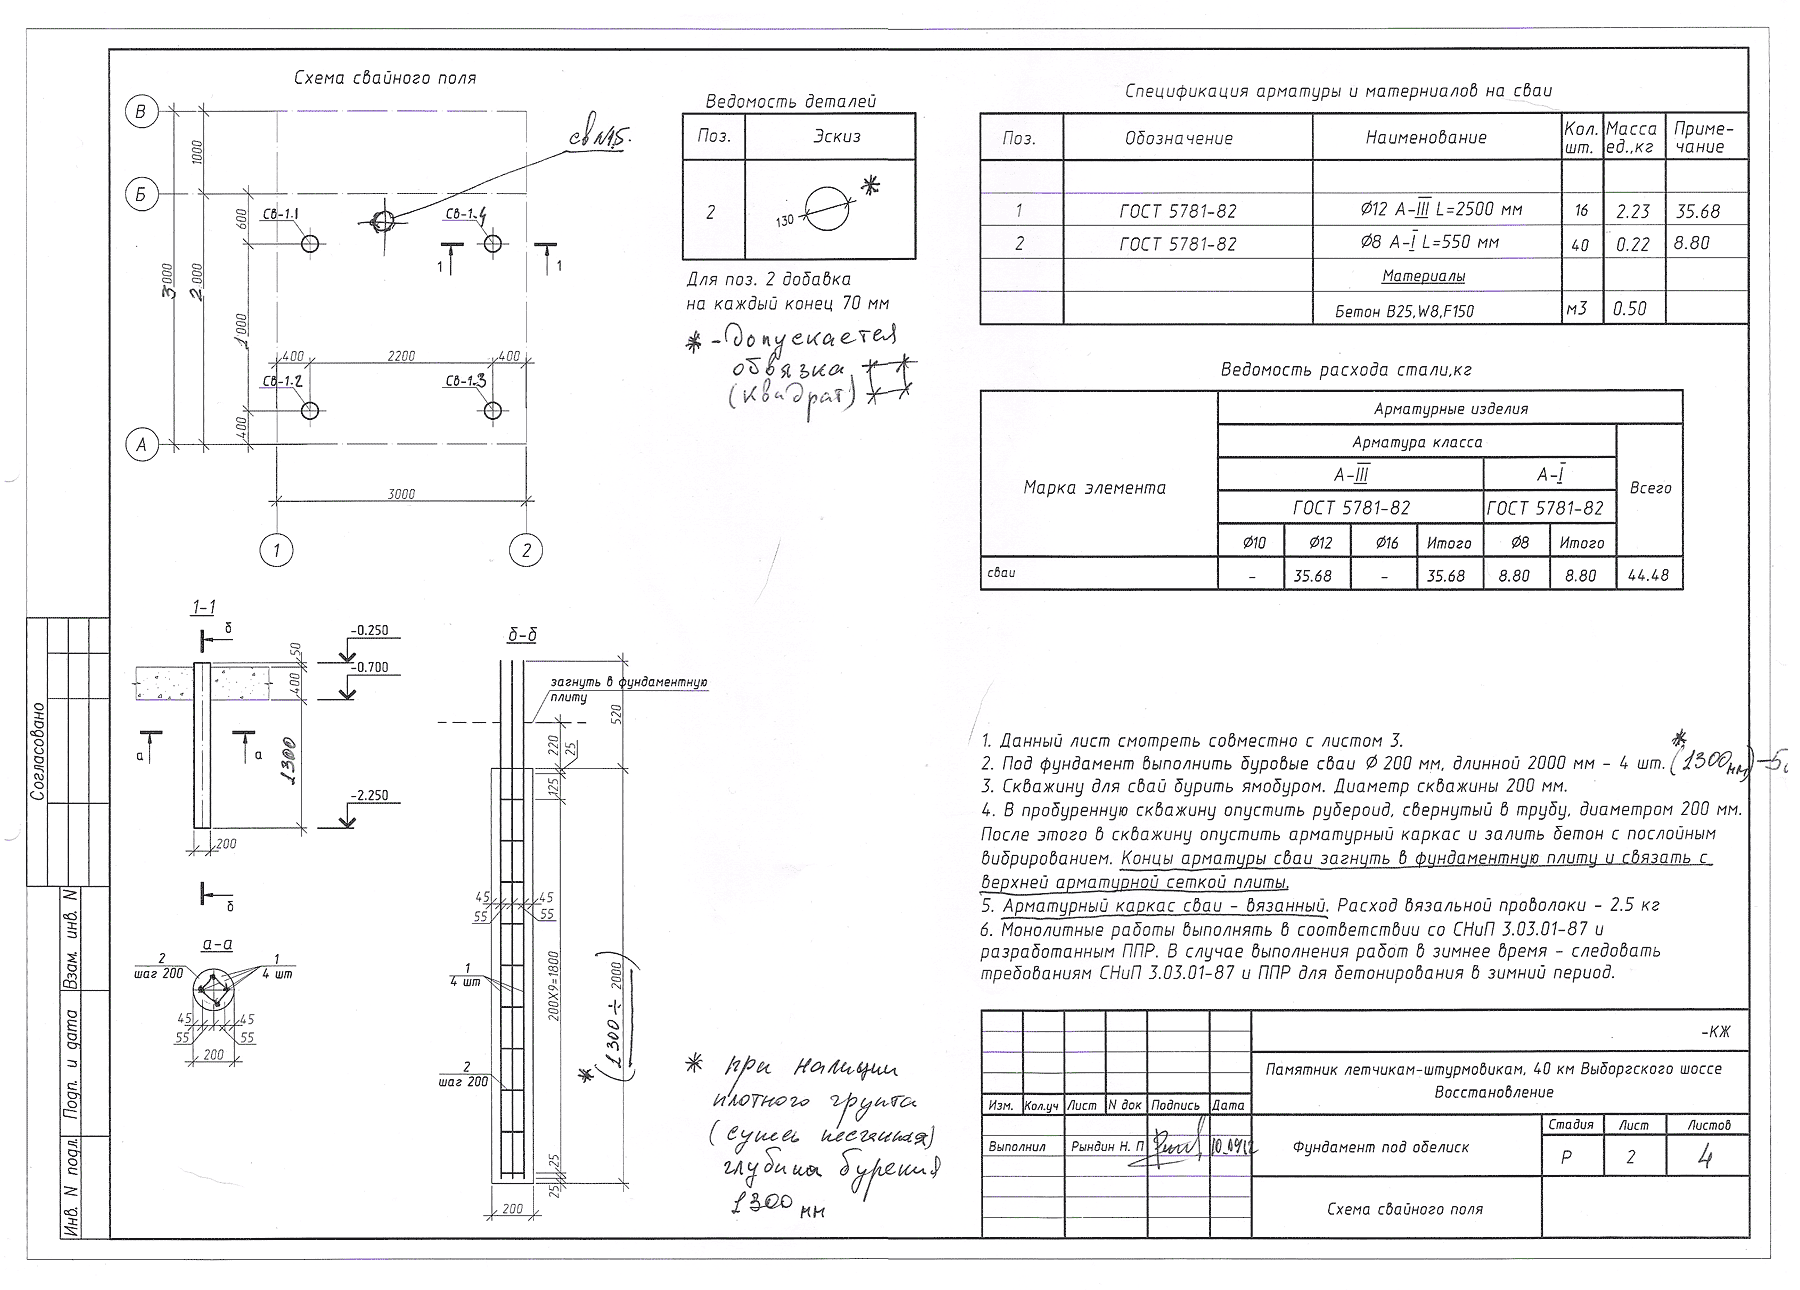 Схема свайного поля
В
Б
А
1000
600
3000
2000
1000
400
Св-1.1
Св-1.4
св №1.5.
1
1
400
2200
400
Св-1.2
Св-1.3
3000
1
2
Ведомость деталей
Поз.
Эскиз
2
130
*
Для поз. 2 добавка
на каждый конец 70 мм
* - Допускается
обвязка
(квадрат)
Спецификация арматуры и матерниалов на сваи
Поз. Обозначение Наименование Кол. шт. Масса ед.,кг Приме-чание
1 ГОСТ 5781-82 Ø12 А-III L=2500 мм 16 2.23 35.68
2 ГОСТ 5781-82 Ø8 А-I L=550 мм 40 0.22 8.80
Материалы
Бетон В25,W8,F150 м3 0.50
Ведомость расхода стали,кг
Марка элемента
Арматурные изделия
Арматура класса
Всего
А-III А-I
ГОСТ 5781-82 ГОСТ 5781-82
Ø10 Ø12 Ø16 Итого Ø8 Итого
сваи - 35.68 - 35.68 8.80 8.80 44.48
1-1
б
50
-0.250
400
-0.700
а
а
1300
-2.250
200
б
а-а
2
шаг 200
1
4 шт
45 45
55 55
200
б-б
загнуть в фундаментную
плиту
520
220
25
125
45 45
55 55
1
4 шт
200X9=1800
2000
* (1300 ÷
2
шаг 200
25
25
200
* при наличии
плотного грунта
(супесь песчанная)
глубина бурения
1300 мм
1. Данный лист смотреть совместно с листом 3.
2. Под фундамент выполнить буровые сваи Ø 200 мм, длинной 2000 мм - 4 шт. * (1300 мм)
3. Скважину для свай бурить ямобуром. Диаметр скважины 200 мм.
4. В пробуренную скважину опустить рубероид, свернутый в трубу, диаметром 200 мм.
После этого в скважину опустить арматурный каркас и залить бетон с послойным
вибрированием. Концы арматуры сваи загнуть в фундаментную плиту и связать с
верхней арматурной сеткой плиты.
5. Арматурный каркас сваи - вязанный. Расход вязальной проволоки - 2.5 кг
6. Монолитные работы выполнять в соответствии со СНиП 3.03.01-87 и
разработанным ППР. В случае выполнения работ в зимнее время - следовать
требованиям СНиП 3.03.01-87 и ППР для бетонирования в зимний период.
-КЖ
Памятник летчикам-штурмовикам, 40 км Выборгского шоссе
Восстановление
Изм. Кол.уч Лист N док Подпись Дата
Выполнил Рындин Н. П 10.09.12
Фундамент под обелиск
Стадия Лист Листов
Р 2 4
Схема свайного поля
Согласовано
Взам. инв. N
Подп. и дата
Инв. N подл.